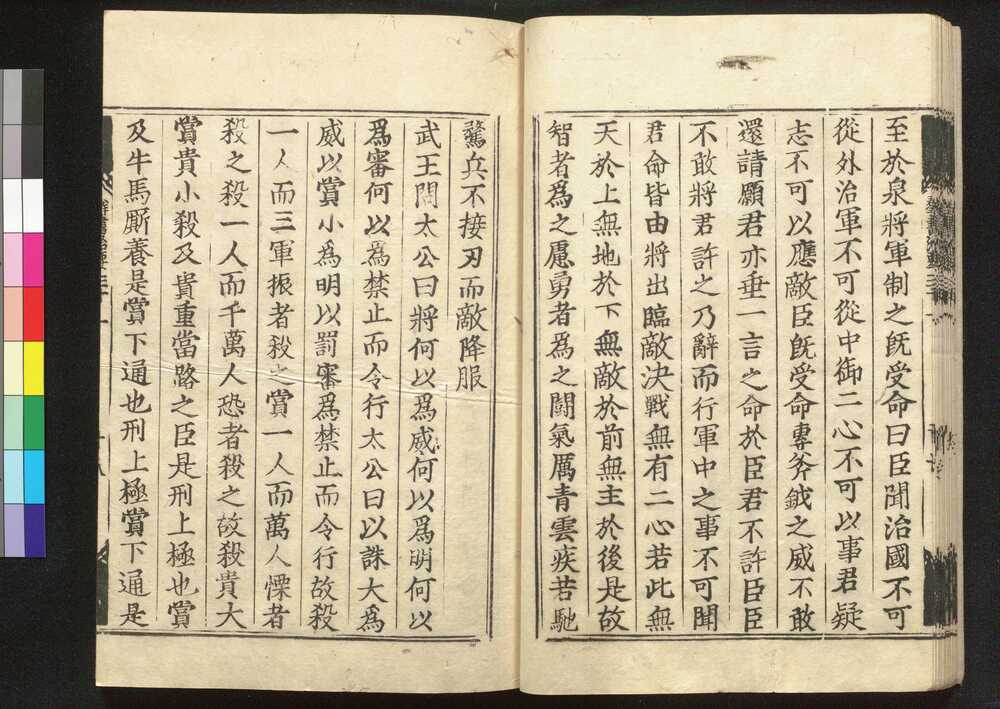 至於泉將軍制之旣受命曰臣聞治國不可
從外治軍不可從中御二心不可以事君疑
志不可以應敵臣旣受命專斧鉞之威不敢
還請願君亦垂一言之命於臣君不許臣臣
不敢將君許之乃辭而行軍中之事不可聞
君命皆由將出臨敵決戰無有二心若此無
天於上無地於下無敵於前無主於後是故
智者爲之慮勇者爲之鬪氣厲青雲疾若馳
驚兵不接刃而敵降服
武王問太公曰將何以爲威何以爲明何以
爲審何以爲禁止而令行太公曰以誅大爲
威以賞小爲明以罰審爲禁止而令行故殺
一人而三軍振者殺之賞一人而萬人慄者
殺之殺一人而千萬人恐者殺之故殺貴大
賞貴小殺及貴重當路之臣是刑上極也賞
及牛馬厮養是賞下通也刑上極賞下通是